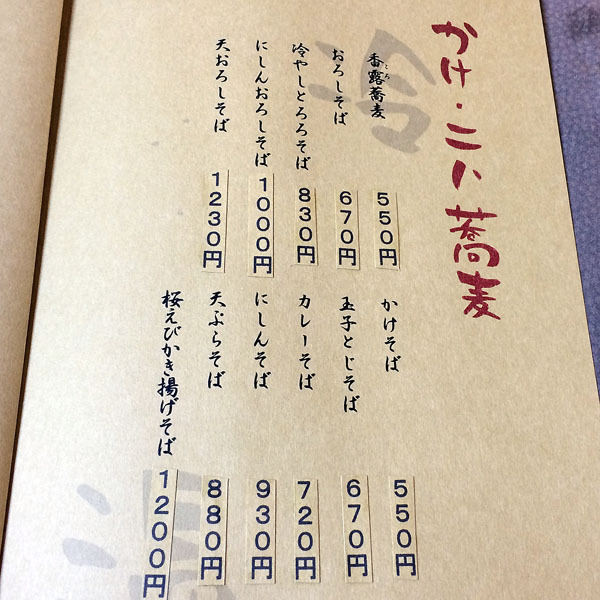 かけ・二八蕎麦
冷
香露蕎麦 550円
おろしそば 670円
冷やしとろろそば 830円
にしんおろしそば 1000円
天おろしそば 1230円
温
かけそば 550円
玉子とじそば 670円
カレーそば 720円
にしんそば 930円
天ぷらそば 880円
桜えびかき揚げそば 1200円